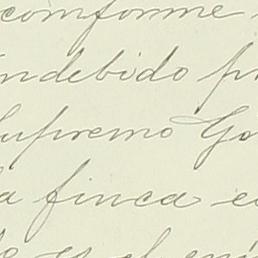 comforme
indebido
Supremo Go
la finca
es el